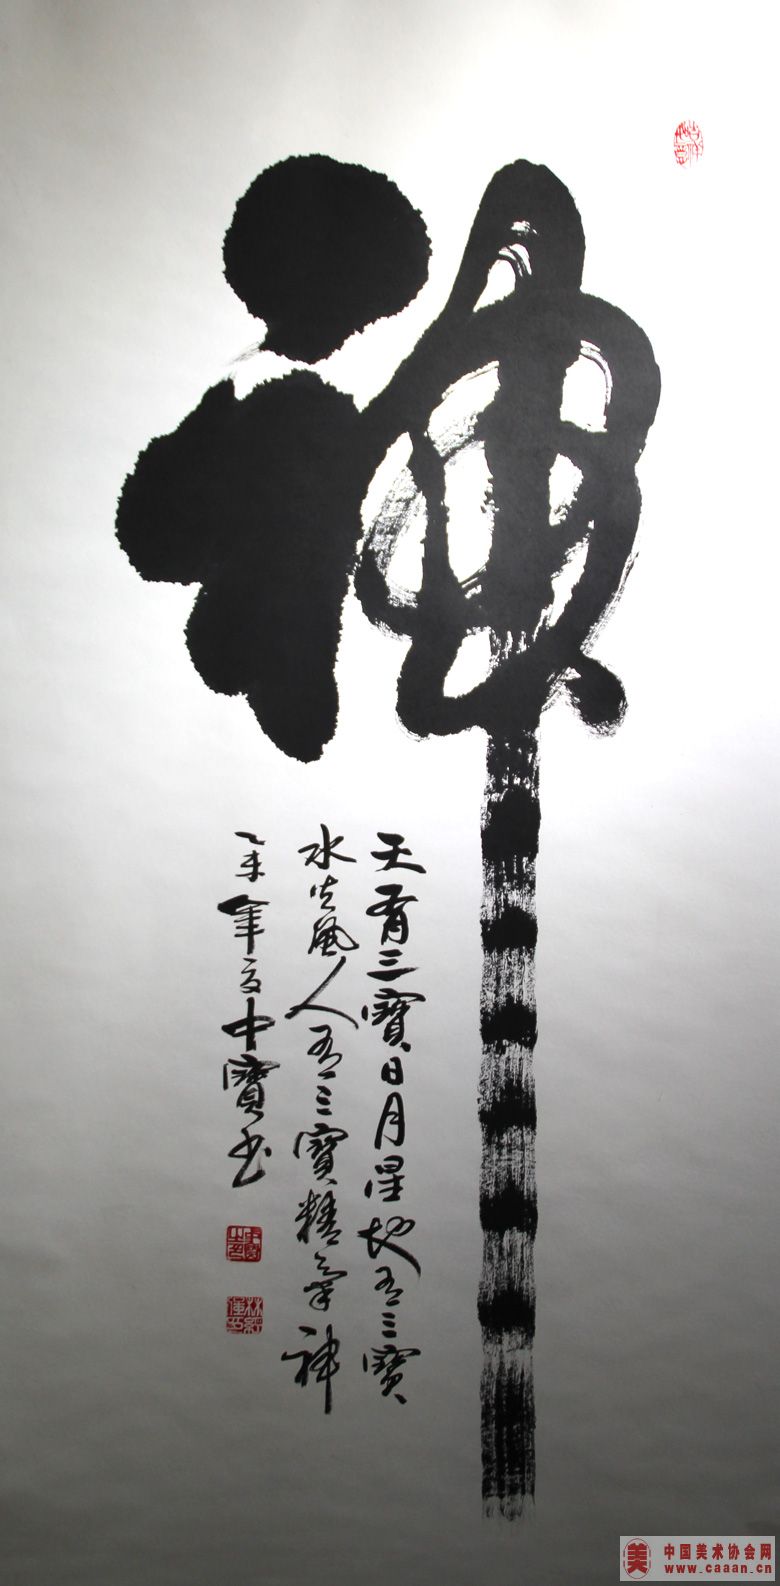 神
天有三寶日月星地有三寶
水火風人有三寶精氣神
乙未年夏中寶書
中国美术协会网
www.caaan.cn